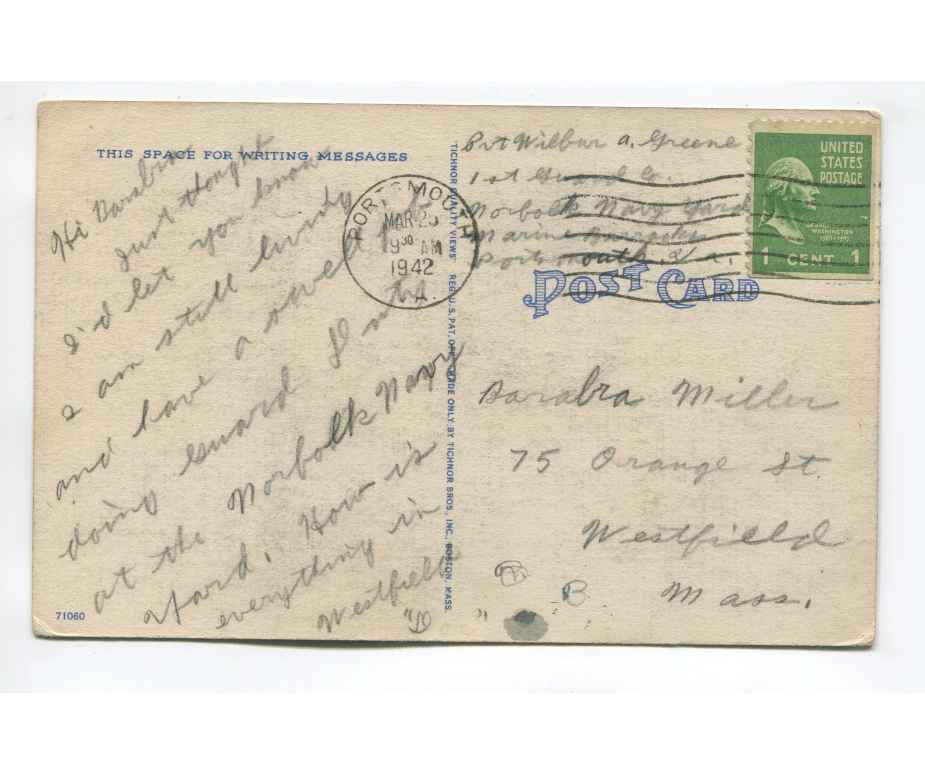 THIS SPACE FOR WRITING MESSAGES
Hi Barabra
Just thought
I'd let you know
I am still living
and have a swell job
doing guard Duty
at the Norbolk Navy
Yard. How is
everything in
Westfield
"D"
71060
TICHNOR QUALITY VIEWS REG. U.S. PAT. OFF. MADE ONLY BY TICHNOR BROS., INC., BOSTON, MASS.
PORTSMOUTH
MAR 25
9 30 AM
1942
VA.
Pvt Wilbur A. Greene
1st Guard Co.
Norbolk Navy Yard
Marine Barracks
Portsmouth, Va.
UNITED
STATES
POSTAGE
WASHINGTON
1 CENT 1
POST CARD
Barabra Miller
75 Orange St.
Westfield
B Mass.